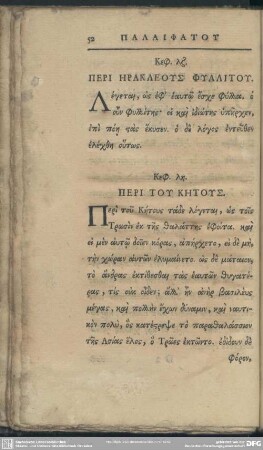 52 ΠΑΛΑΙΦΑΤΟΥ
Κεφ. λζ.
ΠΕΡΙ ΗΡΑΚΛΕΟΥΣ ΦΥΛΛΙΤΟΥ.
Λέγεται, ὡς ἐφ' ἑαυτῷ ἔσχε φύλλα. ὁ
οὖν Φυλλίτης εἰ καὶ ἰδιώτης ὑπῆρχεν,
ἐπὶ
ἔκαυσεν. ὁ δὲ λόγος ἐντεῦθεν
ἐλέχθη οὕτως.
Κεφ. λη.
ΠΕΡΙ ΤΟΥ ΚΗΤΟΥΣ.
Περὶ τοῦ Κήτους τάδε λέγεται, ὡς τοῖς
Τρωσὶν ἐκ τῆς θαλάττης ἐφοίτα. καὶ
εἰ μὲν αὐτῷ δοῖεν κόρας, ἀπήρχετο, εἰ δὲ μὴ,
τὴν χώραν αὐτῶν ἐλυμαίνετο. ὡς δὲ μάταιον,
τὸ ἄνδρας ἐκτίθεσθαι τὰς ἑαυτῶν θυγατέρας,
τίς οὐκ οἶδεν; ἀλλ' ἦν ἀνὴρ βασιλεὺς
μέγας, καὶ πολλὴν ἔχων δύναμιν, καὶ ναυτικὸν
πολὺ, ὃς κατέτρεψε τὸ παραθαλάσσιον
τῆς Ἀσίας ὅλος, ὃ Τρῶες ἐκτῶντο. ἐδίδουν δὲ
φόρον,